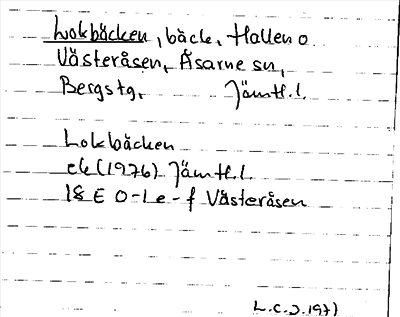 Lokbäcken, bäck, Hallen o
Västeråsen, Åsarne sn,
Bergs tg, Jämtl.l.
Lokbäcken
ek (1976) Jämtl.l.
18 E 0-1 e-f Västeråsen
L.C.J. 1971